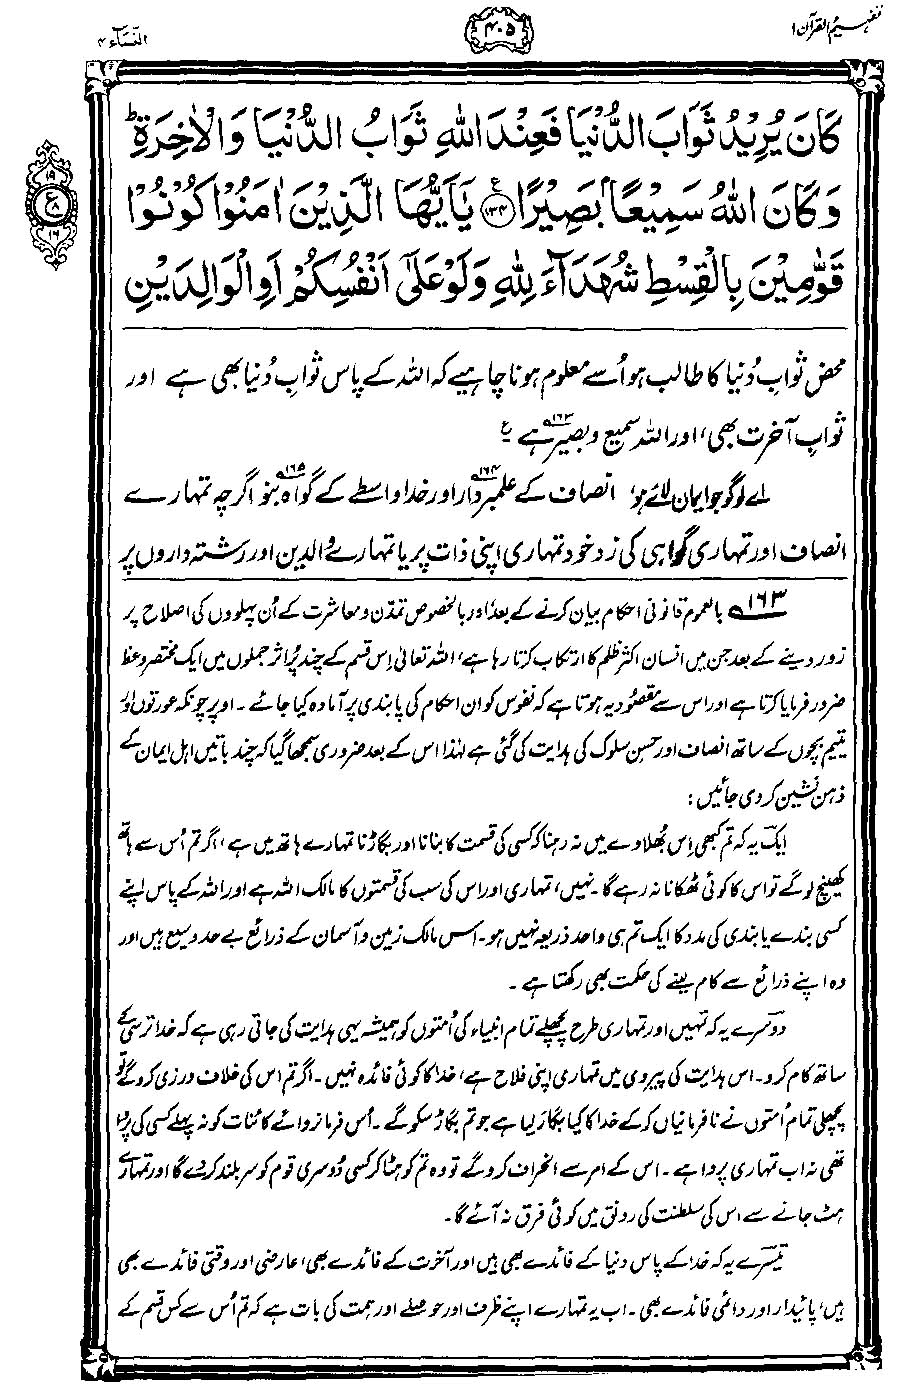 تفہیم القرآن ۱
۴۰۵
النساء ۴
كَانَ يُرِيْدُ ثَوَابَ الدُّنْيَا فَعِنْدَ اللّٰهِ ثَوَابُ الدُّنْيَا وَالْاٰخِرَةِ ؕ
وَكَانَ اللّٰهُ سَمِيْعًۢا بَصِيْرًا ۱۳۴ ع يٰۤاَيُّهَا الَّذِيْنَ اٰمَنُوْا كُوْنُوْا
قَوّٰمِيْنَ بِالْقِسْطِ شُهَدَآءَ لِلّٰهِ وَلَوْ عَلٰۤى اَنْفُسِكُمْ اَوِ الْوَالِدَيْنِ
۱۹
ع
۸
۱۶
محض ثوابِ دُنیا کا طالب ہو اُسے معلوم ہونا چاہیے کہ اللہ کے پاس ثوابِ دُنیا بھی ہے اور
ثوابِ آخرت بھی، اور اللہ سمیع و بصیر ہے ۱۶۳ ؏
اے لوگو جو ایمان لائے ہو، انصاف کے علمبردار ۱۶۴ اور خدا واسطے کے گواہ ۱۶۵ بنو اگرچہ تمہارے
انصاف اور تمہاری گواہی کی زد خود تمہاری اپنی ذات پر یا تمہارے والدین اور رشتہ داروں پر
۱۶۳ بالعموم قانونی احکام بیان کرنے کے بعد اور بالخصوص تمدن و معاشرت کے اُن پہلوؤں کی اصلاح پر
زور دینے کے بعد جن میں انسان اکثر ظلم کا ارتکاب کرتا رہا ہے، اللہ تعالیٰ اِس قسم کے چند پُراثر جملوں میں ایک مختصر وعظ
ضرور فرمایا کرتا ہے اور اس سے مقصُود یہ ہوتا ہے کہ نفوس کو ان احکام کی پابندی پر آمادہ کیا جائے۔ اوپر چونکہ عورتوں اور
یتیم بچوں کے ساتھ انصاف اور حسنِ سلوک کی ہدایت کی گئی ہے لہٰذا اس کے بعد ضروری سمجھا گیا کہ چند باتیں اہلِ ایمان کے
ذہن نشین کر دی جائیں:
ایک یہ کہ تم کبھی اِس بُھلاوے میں نہ رہنا کہ کسی کی قسمت کا بنانا اور بگاڑنا تمہارے ہاتھ میں ہے، اگر تم اُس سے ہاتھ
کھینچ لو گے تو اس کا کوئی ٹھکانا نہ رہے گا۔ نہیں، تمہاری اور اس کی سب کی قسمتوں کا مالک اللہ ہے اور اللہ کے پاس اپنے
کسی بندے یا بندی کی مدد کا ایک تم ہی واحد ذریعہ نہیں ہو۔ اس مالکِ زمین و آسمان کے ذرائع بے حد وسیع ہیں اور
وہ اپنے ذرائع سے کام لینے کی حکمت بھی رکھتا ہے۔
دُوسرے یہ کہ تمہیں اور تمہاری طرح پچھلے تمام انبیاء کی اُمتوں کو ہمیشہ یہی ہدایت کی جاتی رہی ہے کہ خدا ترسی کے
ساتھ کام کرو۔ اس ہدایت کی پیروی میں تمہاری اپنی فلاح ہے، خدا کا کوئی فائدہ نہیں۔ اگر تم اس کی خلاف ورزی کرو گے تو
پچھلی تمام اُمتوں نے نافرمانیاں کر کے خدا کا کیا بگاڑ لیا ہے جو تم بگاڑ سکو گے۔ اُس فرمانروائے کائنات کو نہ پہلے کسی کی پروا
تھی نہ اب تمہاری پروا ہے۔ اس کے امر سے انحراف کرو گے تو وہ تم کو ہٹا کر کسی دُوسری قوم کو سربلند کر دے گا اور تمہارے
ہٹ جانے سے اس کی سلطنت کی رونق میں کوئی فرق نہ آئے گا۔
تیسرے یہ کہ خدا کے پاس دنیا کے فائدے بھی ہیں اور آخرت کے فائدے بھی، عارضی اور وقتی فائدے بھی
ہیں، پائیدار اور دائمی فائدے بھی۔ اب یہ تمہارے اپنے ظرف اور حوصلے اور ہمت کی بات ہے کہ تم اُس سے کس قسم کے